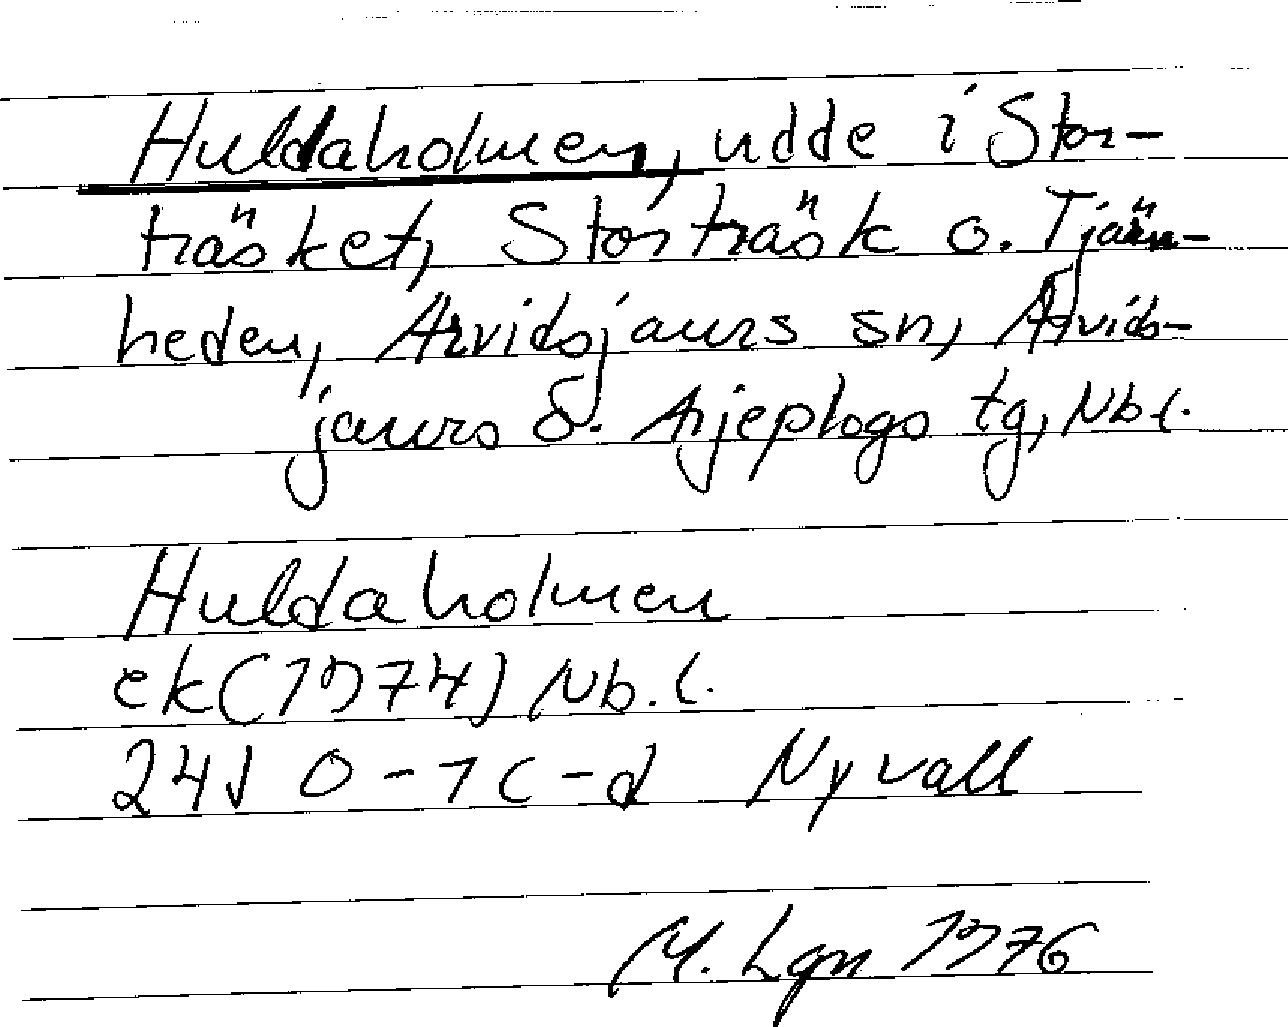 Huldaholmen, udde i Stor-
träsket, Storträsk o. Tjärn-
heden, Arvidsjaurs sn, Arvids-
jaurs o. Arjeplogs tg, Nb.l.
Huldaholmen
ek(1974) Nb.l.
24J 0-1 c-d Nyvall
M. Lgn 1976